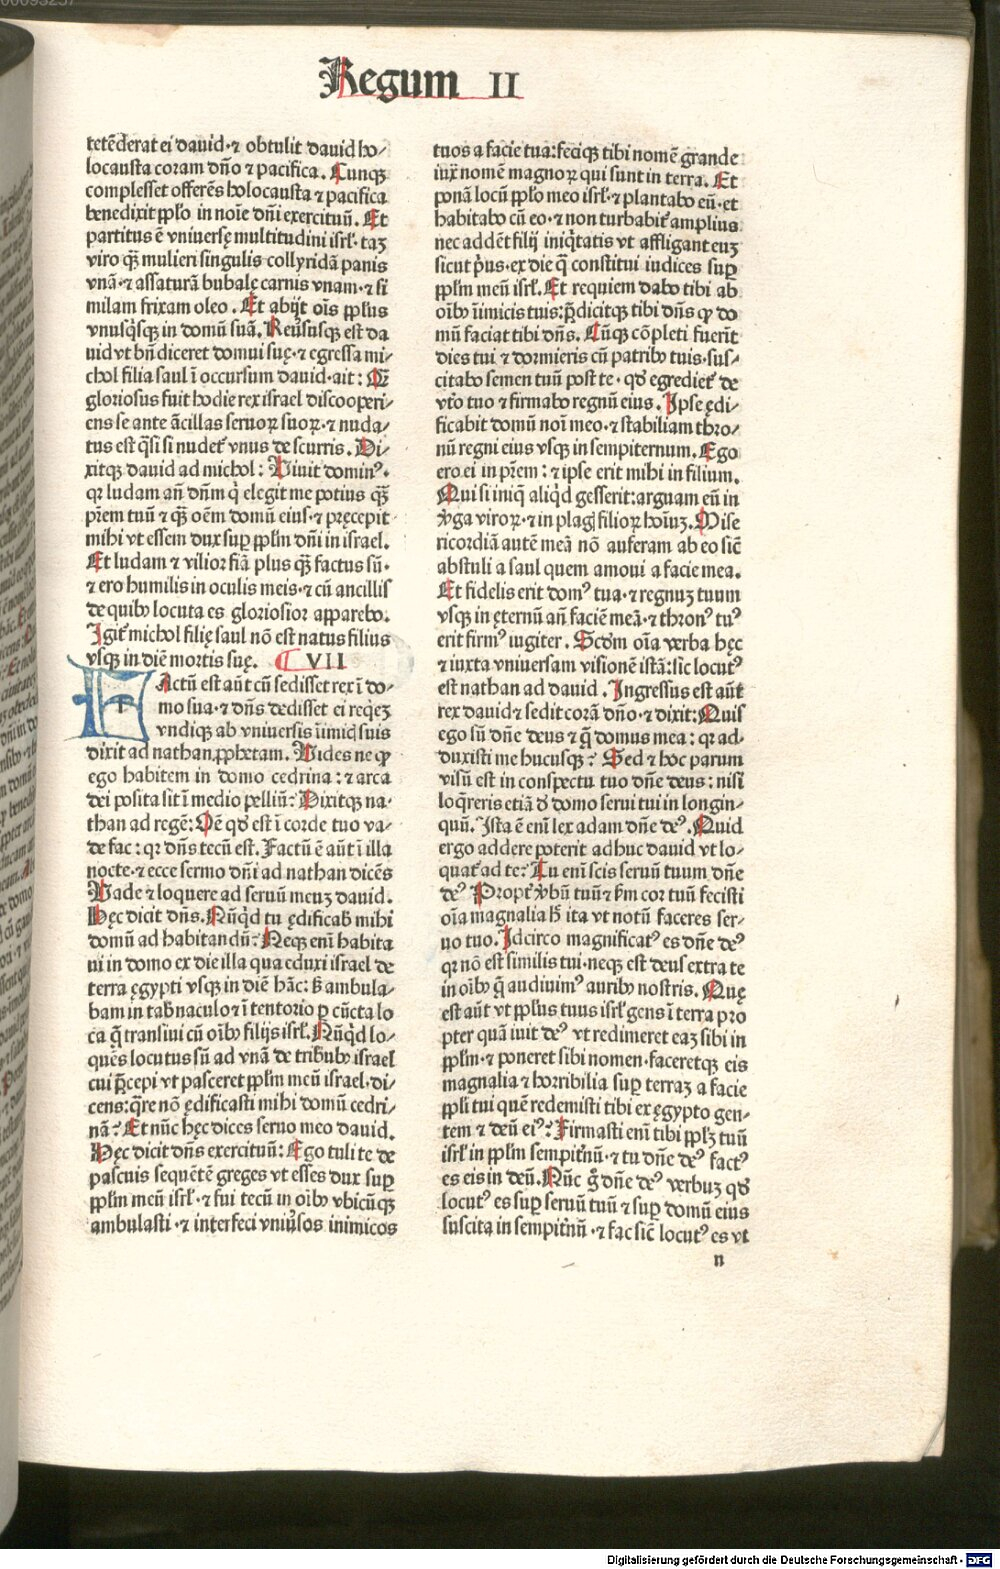 Regum II
tetēderat ei dauid·⁊ obtulit dauid ho/
locausta coram dn̄o ⁊ pacifica. Cunqꝫ
complesset offerēs holocausta ⁊ pacifica
benedixit pp̄lo in noīe dn̄i exercituū. Et
partitus ē vniuersę multitudini isrl̄· taꝫ
viro qꝫ̄ mulieri singulis collyridā panis
vnā·⁊ assaturā bubalę carnis vnam·⁊ si
milam frixam oleo. Et abijt oīs pp̄lus
vnusq̇sqꝫ in domū suā. Reuersusqꝫ est da
uid vt bn̄diceret domui suę·⁊ egressa mi/
chol filia saul ī occursum dauid·ait: Qꝫ̄
gloriosus fuit hodie rex israel discooperi/
ens se ante ācillas seruoꝝ suoꝝ·⁊ nuda/
tus est q̄si si nudet᷑ vnus de scurris. Di/
xitqꝫ dauid ad michol: Viuit dominꝰ·
qꝛ ludam an̄ dn̄m q̇ elegit me potius qꝫ̄
pr̄em tuū ⁊ qꝫ̄ oēm domū eius·⁊ pręcepit
mihi vt essem dux suꝑ pp̄lm dn̄i in israel.
Et ludam ⁊ vilior fiā plus qꝫ̄ factus sū·
⁊ ero humilis in oculis meis·⁊ cū ancillis
de quibꝰ locuta es gloriosior apparebo.
Igit᷑ michol filię saul nō est natus filius
vsqꝫ in diē mortis suę. VII
F Actū est aūt cū sedisset rex ī do/
mo sua·⁊ dn̄s dedisset ei reqeꝫ
vndiqꝫ ab vniuersis īimiq̇s suis
dixit ad nathan ꝓphetam. Vides ne ꝙ
ego habitem in domo cedrina: ⁊ arca
dei posita sit ī medio pelliū? Dixitqꝫ na/
than ad regē: Oē qd̄ est ī corde tuo va/
de fac: qꝛ dn̄s tecū est. Factū ē aūt ī illa
nocte·⁊ ecce sermo dn̄i ad nathan dicēs
Vade ⁊ loquere ad seruū meuꝫ dauid.
Hęc dicit dn̄s. Nūq̇d tu ędificab̄ mihi
domū ad habitandū? Neqꝫ eni̅ habita
ui in domo ex die illa qua eduxi israel de
terra ęgypti vsqꝫ in diē hāc: s̄ ambula/
bam in tab̄naculo ⁊ ī tentorio ꝑ cūcta lo
ca q̄ transiui cū oībꝰ filijs isrl̄. Nūq̇d lo/
quēs locutus sū ad vnā de tribubꝰ israel
cui p̄cepi vt pasceret pp̄lm meū israel·di/
cens: q̄re nō ędificasti mihi domū cedri/
nā? Et nūc hęc dices seruo meo dauid.
Hęc dicit dn̄s exercituū: Ego tuli te de
pascuis sequētē greges vt essēs dux suꝑ
pp̄lm meū isrl̄·⁊ fui tecū in oībꝰ vbicūqꝫ
ambulasti·⁊ interfeci vniu̅sos inimicos
tuos a facie tua: feciqꝫ tibi nomē grande
iux̄ nomē magnoꝝ qui sunt in terra. Et
ponā locū pp̄lo meo isrl̄·⁊ plantabo eū·et
habitabo cū eo·⁊ non turbabit᷑ amplius
nec addēt filij iniq̇tatis vt affligant euꝫ
sicut pͥus·ex die q̄ constitui iudices suꝑ
pp̄lm meū isrl̄. Et requiem dabo tibi ab
oībꝰ īimicis tuis: p̄dicitqꝫ tibi dn̄s ꝙ do
mū faciat tibi dn̄s. Cūqꝫ cōpleti fuerīt
dies tui ⁊ dormieris cū patribꝰ tuis·sus/
citabo semen tuū post te·qd̄ egrediet᷑ de
vt͛o tuo ⁊ firmabo regnū eius. Ipse ędi/
ficabit domū noī meo·⁊ stabiliam thro/
nū regni eius vsqꝫ in sempiternum. Ego
ero ei in pr̄em: ⁊ ipse erit mihi in filium.
Qui si iniq̄ aliq̇d gesserit: arguam eū in
v͛ga viroꝝ·⁊ in plaḡ filioꝝ hoīuꝫ. Mise
ricordiā autē meā nō auferam ab eo sic̄
abstuli a saul quem amoui a facie mea.
Et fidelis erit domꝰ tua·⁊ regnuꝫ tuum
vsqꝫ in ęternū an̄ faciē meā·⁊ thronꝰ tuꝰ
erit firmꝰ iugiter. Scd̄m oīa verba hęc
⁊ iuxta vniuersam visionē istā: sic locutꝰ
est nathan ad dauid. Ingressus est aūt
rex dauid ⁊ sedit corā dn̄o·⁊ dixit: Quis
ego sū dn̄e deus ⁊ q̄ domus mea: qꝛ ad/
duxisti me hucusqꝫ? Sed ⁊ hoc parum
visū est in conspectu tuo dn̄e deus: nisi
loq̄reris etiā d̄ domo serui tui in longin/
quū. Ista ē eni̅ lex adam dn̄e deꝰ. Quid
ergo addere poterit adhuc dauid vt lo/
quat᷑ ad te? Tu eni̅ scis seruū tuum dn̄e
deꝰ Propt͛ v͛bū tuū ⁊ s̄m cor tuū fecisti
oīa magnalia h̄ ita vt notū faceres ser/
uo tuo. Idcirco magnificatꝰ es dn̄e deꝰ
qꝛ nō est similis tui·neqꝫ est deus extra te
in oībꝰ q̄ audiuimꝰ auribꝰ nostris. Quę
est aūt vt pp̄lus tuus isrl̄ gens ī terra pro
pter quā iuit deꝰ vt redimeret eaꝫ sibi in
pp̄lm·⁊ poneret sibi nomen·faceretqꝫ eis
magnalia ⁊ horribilia suꝑ terraꝫ a facie
pp̄li tui quē redemisti tibi ex ęgypto gen/
tem ⁊ deū eiꝰ? Firmasti eni̅ tibi pp̄lꝫ tuū
isrl̄ in pp̄lm sempit͛nū·⁊ tu dn̄e deꝰ factꝰ
es eis in deū. Nūc g̊ dn̄e deꝰ verbuꝫ qd̄
locutꝰ es suꝑ seruū tuū ⁊ suꝑ domū eius
suscita in sempit͛nū·⁊ fac sic̄ locutꝰ es vt
n
Digitalisierung gefördert durch die Deutsche Forschungsgemeinschaft - DFG